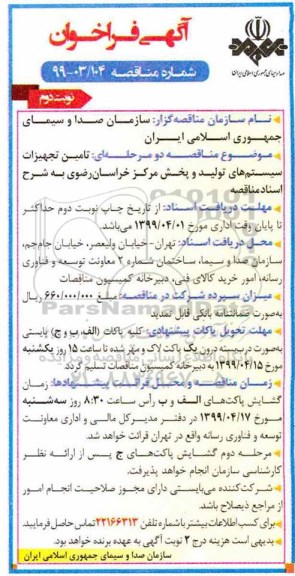 آگهی فراخوان
صدا و سیمای جمهوری اسلامی ایران
شماره مناقصه ۹۹-۰۳/۱۰۴
نوبت دوم
نام سازمان مناقصه‌گزار: سازمان صدا و سیمای
جمهوری اسلامی ایران
موضوع مناقصه دو مرحله‌ای: تامین تجهیزات
سیستم‌های تولید و پخش مرکز خراسان‌رضوی به شرح
اسناد مناقصه
مهلت دریافت اسناد: از تاریخ چاپ نوبت دوم حداکثر
تا پایان وقت اداری مورخ ۱۳۹۹/۰۴/۰۱ می‌باشد.
محل دریافت اسناد: تهران-خیابان ولیعصر، خیابان جام‌جم،
سازمان صدا و سیما، ساختمان شماره ۲ معاونت توسعه و فناوری
رسانه، امور خرید کالای فنی، دبیرخانه کمیسیون مناقصات
میزان سپرده شرکت در مناقصه: مبلغ ۶۶۰/۰۰۰/۰۰۰ ریال
به‌صورت ضمانتنامه بانکی قابل تمدید
مهلت تحویل پاکات پیشنهادی: کلیه پاکات (الف، ب و ج) بایستی
به‌صورت دربسته درون یک پاکت لاک و مهر شده تا ساعت ۱۵ روز یکشنبه
مورخ ۱۳۹۹/۰۴/۱۵ به دبیرخانه کمیسیون مناقصات تسلیم گردد.
زمان مناقصه و محل قرائت پیشنهادها: زمان
گشایش پاکت‌های الف و ب رأس ساعت ۸:۳۰ روز سه‌شنبه
مورخ ۱۳۹۹/۰۴/۱۷ در دفتر مدیرکل مالی و اداری معاونت
توسعه و فناوری رسانه واقع در تهران قرائت خواهد شد.
مرحله دوم گشایش پاکت‌های ج پس از ارائه نظر
کارشناسی سازمان انجام خواهد پذیرفت.
شرکت‌کننده می‌بایستی دارای مجوز صلاحیت انجام امور
از مراجع ذیصلاح باشد.
برای کسب اطلاعات بیشتر با شماره تلفن ۲۲۱۶۶۳۱۳ تماس حاصل فرمایید.
بدیهی است هزینه درج ۲ نوبت آگهی به عهده برنده خواهد بود.
سازمان صدا و سیمای جمهوری اسلامی ایران